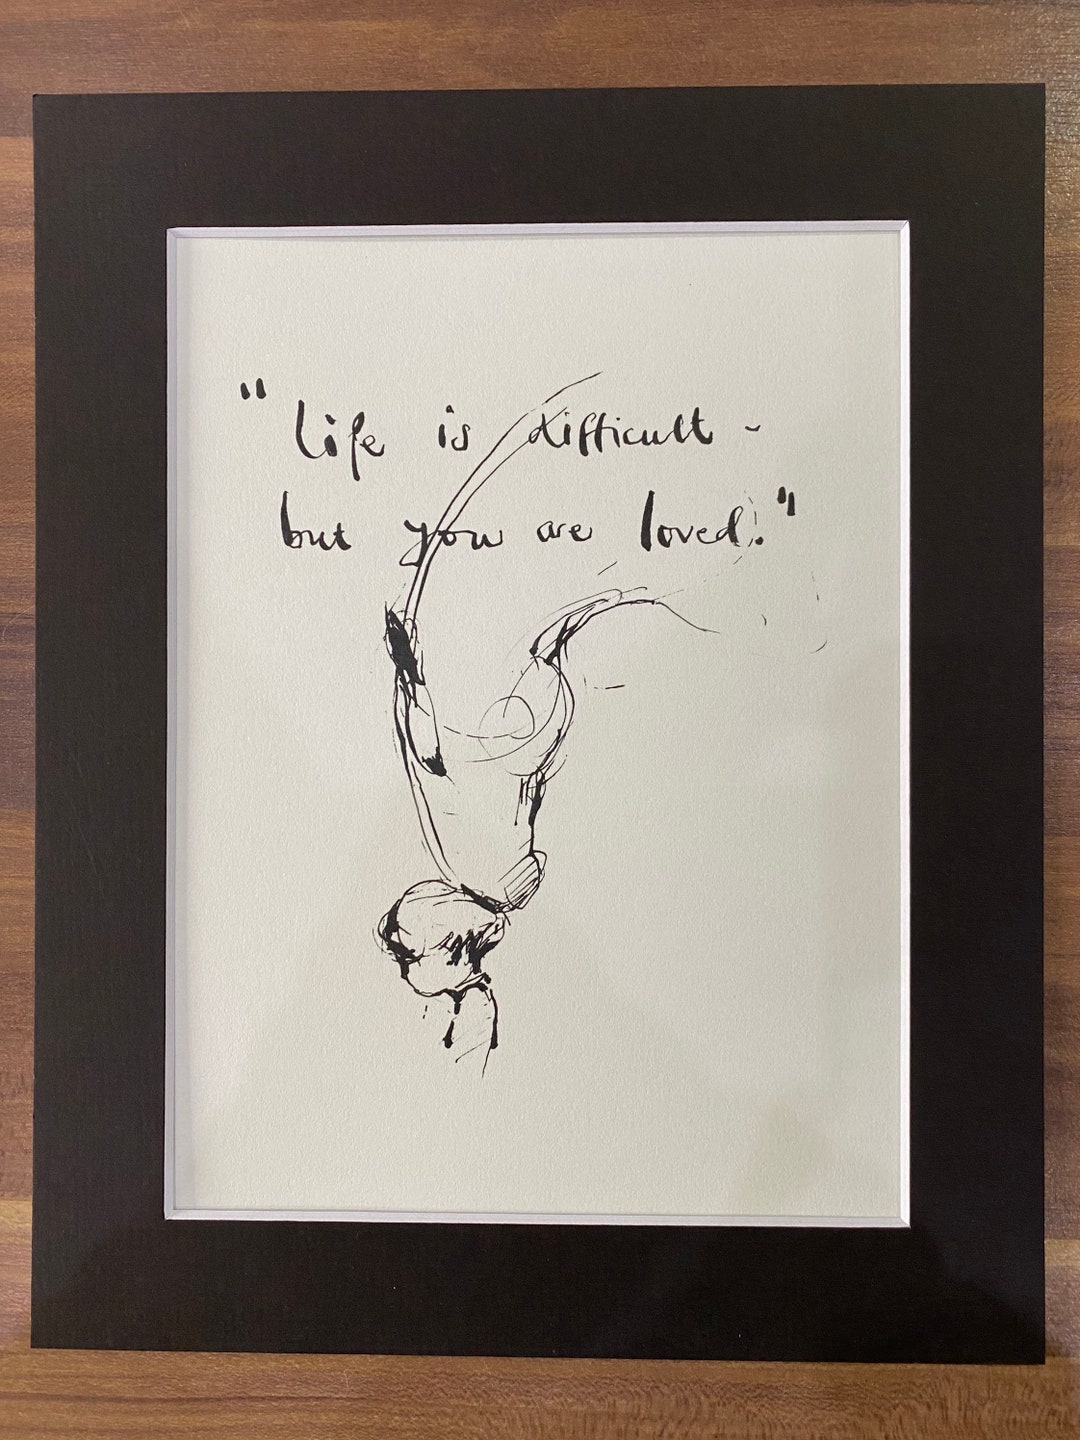 "Life is difficult -
but you are loved."